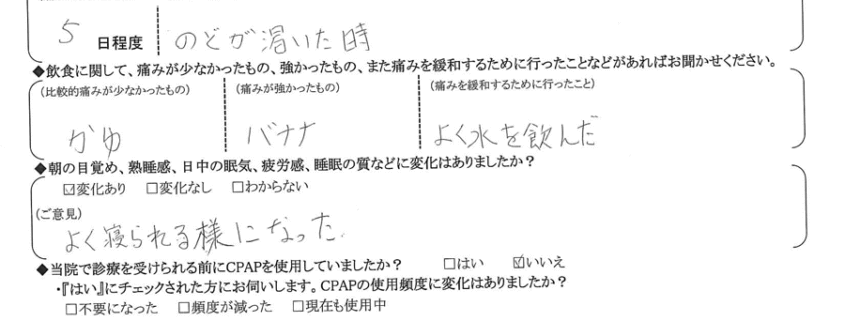 5 日程度 のどが渇いた時
◆飲食に関して、痛みが少なかったもの、強かったもの、また痛みを緩和するために行ったことなどがあればお聞かせください。
(比較的痛みが少なかったもの) (痛みが強かったもの) (痛みを緩和するために行ったこと)
かゆ バナナ よく水を飲んだ
◆朝の目覚め、熟睡感、日中の眠気、疲労感、睡眠の質などに変化はありましたか？
☑変化あり □変化なし □わからない
(ご意見)
よく寝られる様になった.
◆当院で診療を受けられる前にCPAPを使用していましたか？ □はい ☑いいえ
・『はい』にチェックされた方にお伺いします。CPAPの使用頻度に変化はありましたか？
□不要になった □頻度が減った □現在も使用中